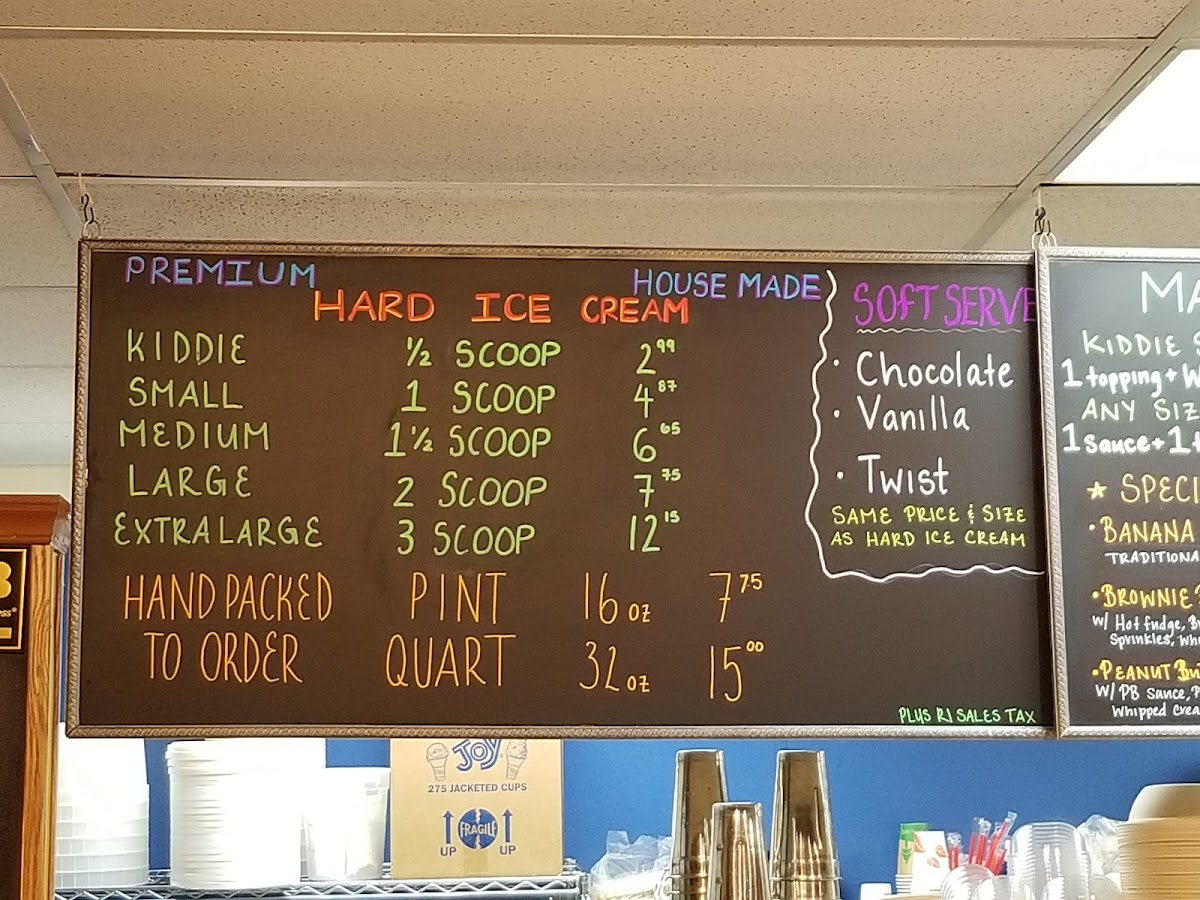 PREMIUM
HOUSE MADE
HARD ICE CREAM
KIDDIE ½ SCOOP 2⁹⁹
SMALL 1 SCOOP 4⁸⁷
MEDIUM 1½ SCOOP 6⁶⁵
LARGE 2 SCOOP 7⁷⁵
EXTRA LARGE 3 SCOOP 12¹⁵
HAND PACKED PINT 16 oz 7⁷⁵
TO ORDER QUART 32 oz 15⁰⁰
SOFT SERVE
· Chocolate
· Vanilla
· Twist
SAME PRICE & SIZE
AS HARD ICE CREAM
PLUS RI SALES TAX
KIDDIE
1 topping +
ANY
1 Sauce + 1
★
• BANANA
• BROWNIE
w/ Hot fudge,
Sprinkles,
• PEANUT
W/ PB Sauce,
Whipped
JOY
275 JACKETED CUPS
UP FRAGILE UP